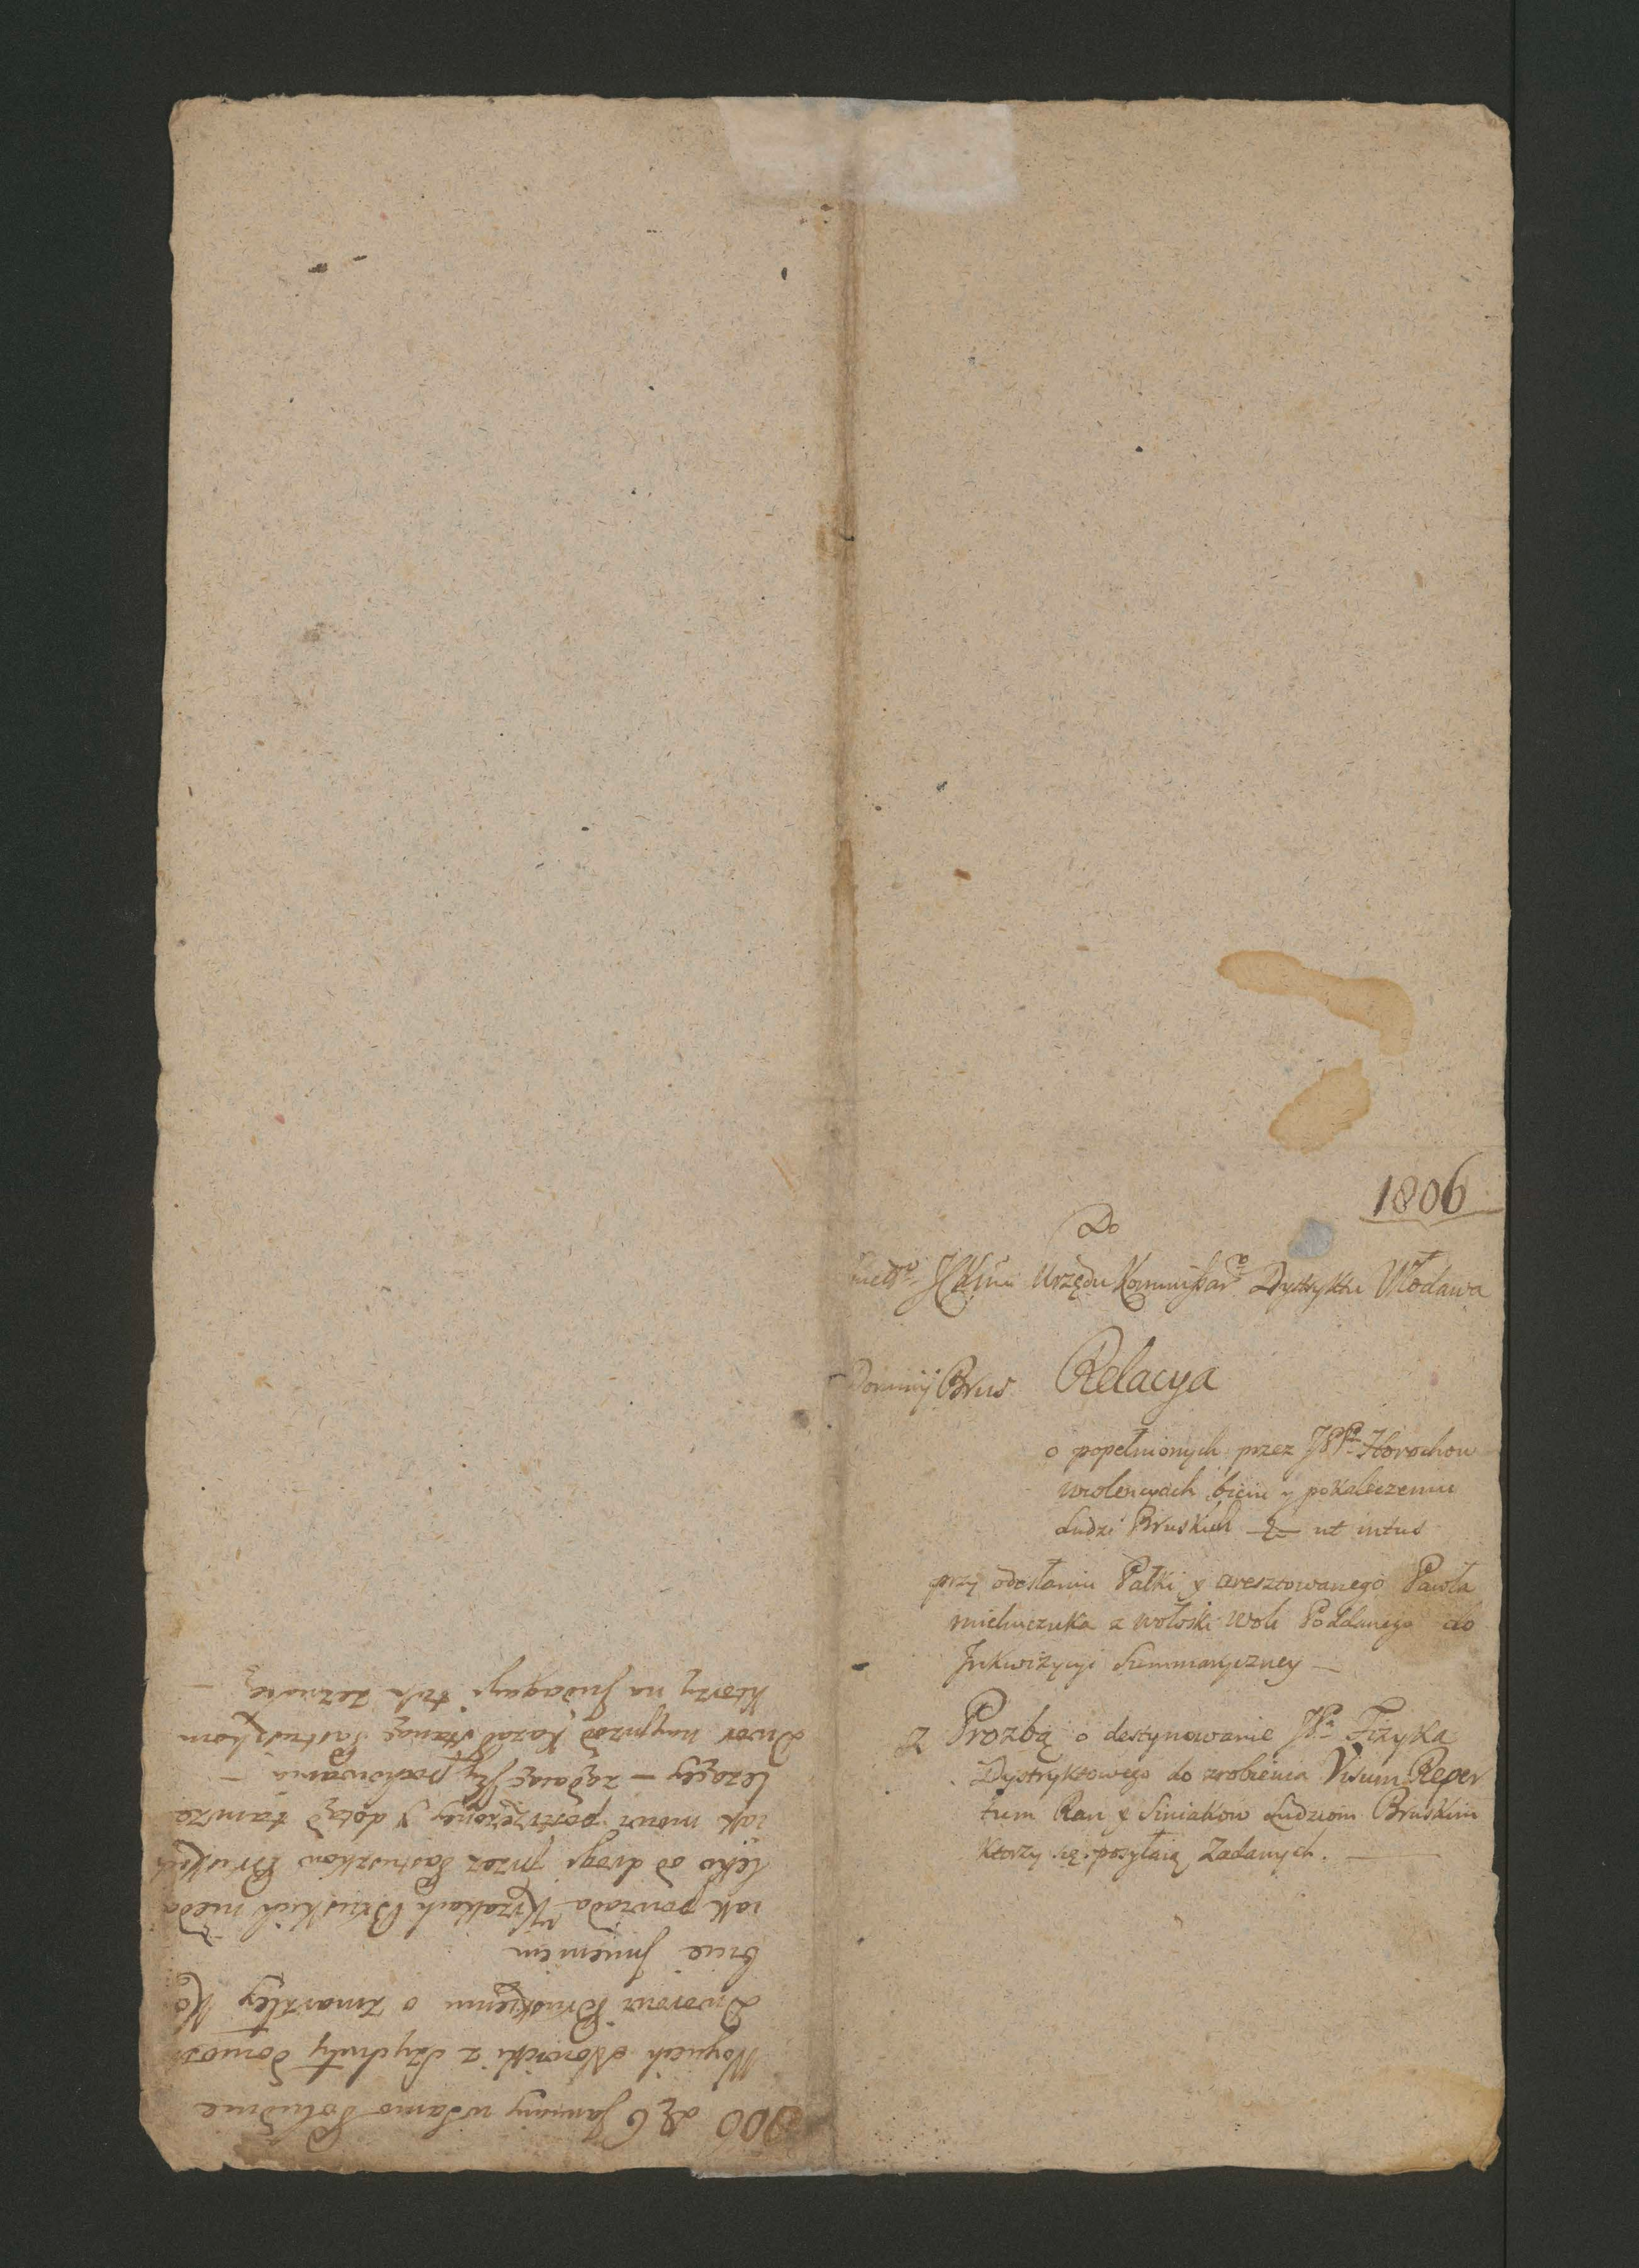 1806
Do
Urzędu Dystryktu Włodawa
Dominij Brus Relacya
o popełnionych przez Horochow
wiolencyach biciu y pokaleczeniu
Ludzi Bruskich ut intus
przy odesłaniu Pałki y aresztowanego Pawła
z Wołoski Woli Poddanego do
Inkwizycyi Summaryczney —
Z Prozbą o destynowanie Fizyka
Dystryktowego do zrobienia Visum Reper
tum Ran y Siniakow Ludziom Bruskim
ktorzy się posyłaią Zadanych. —
806 d. 6 January w Samo Południe
Woyciech Nowicki z donosi
Dworowi Bruskiemu o zmarzłey Ko
biecie
iak powiada Krzakach Bruskich nieda
leko od drogi przez Pastuszkow Bruskich
iak mowi postrzeżoney y dotąd tamże
leżącey — żądaiąc Jey pochowania —
Dwor nayprzod kazał stanąć Pastuszkom
ktorzy na Indagacyi tak zeznaią —